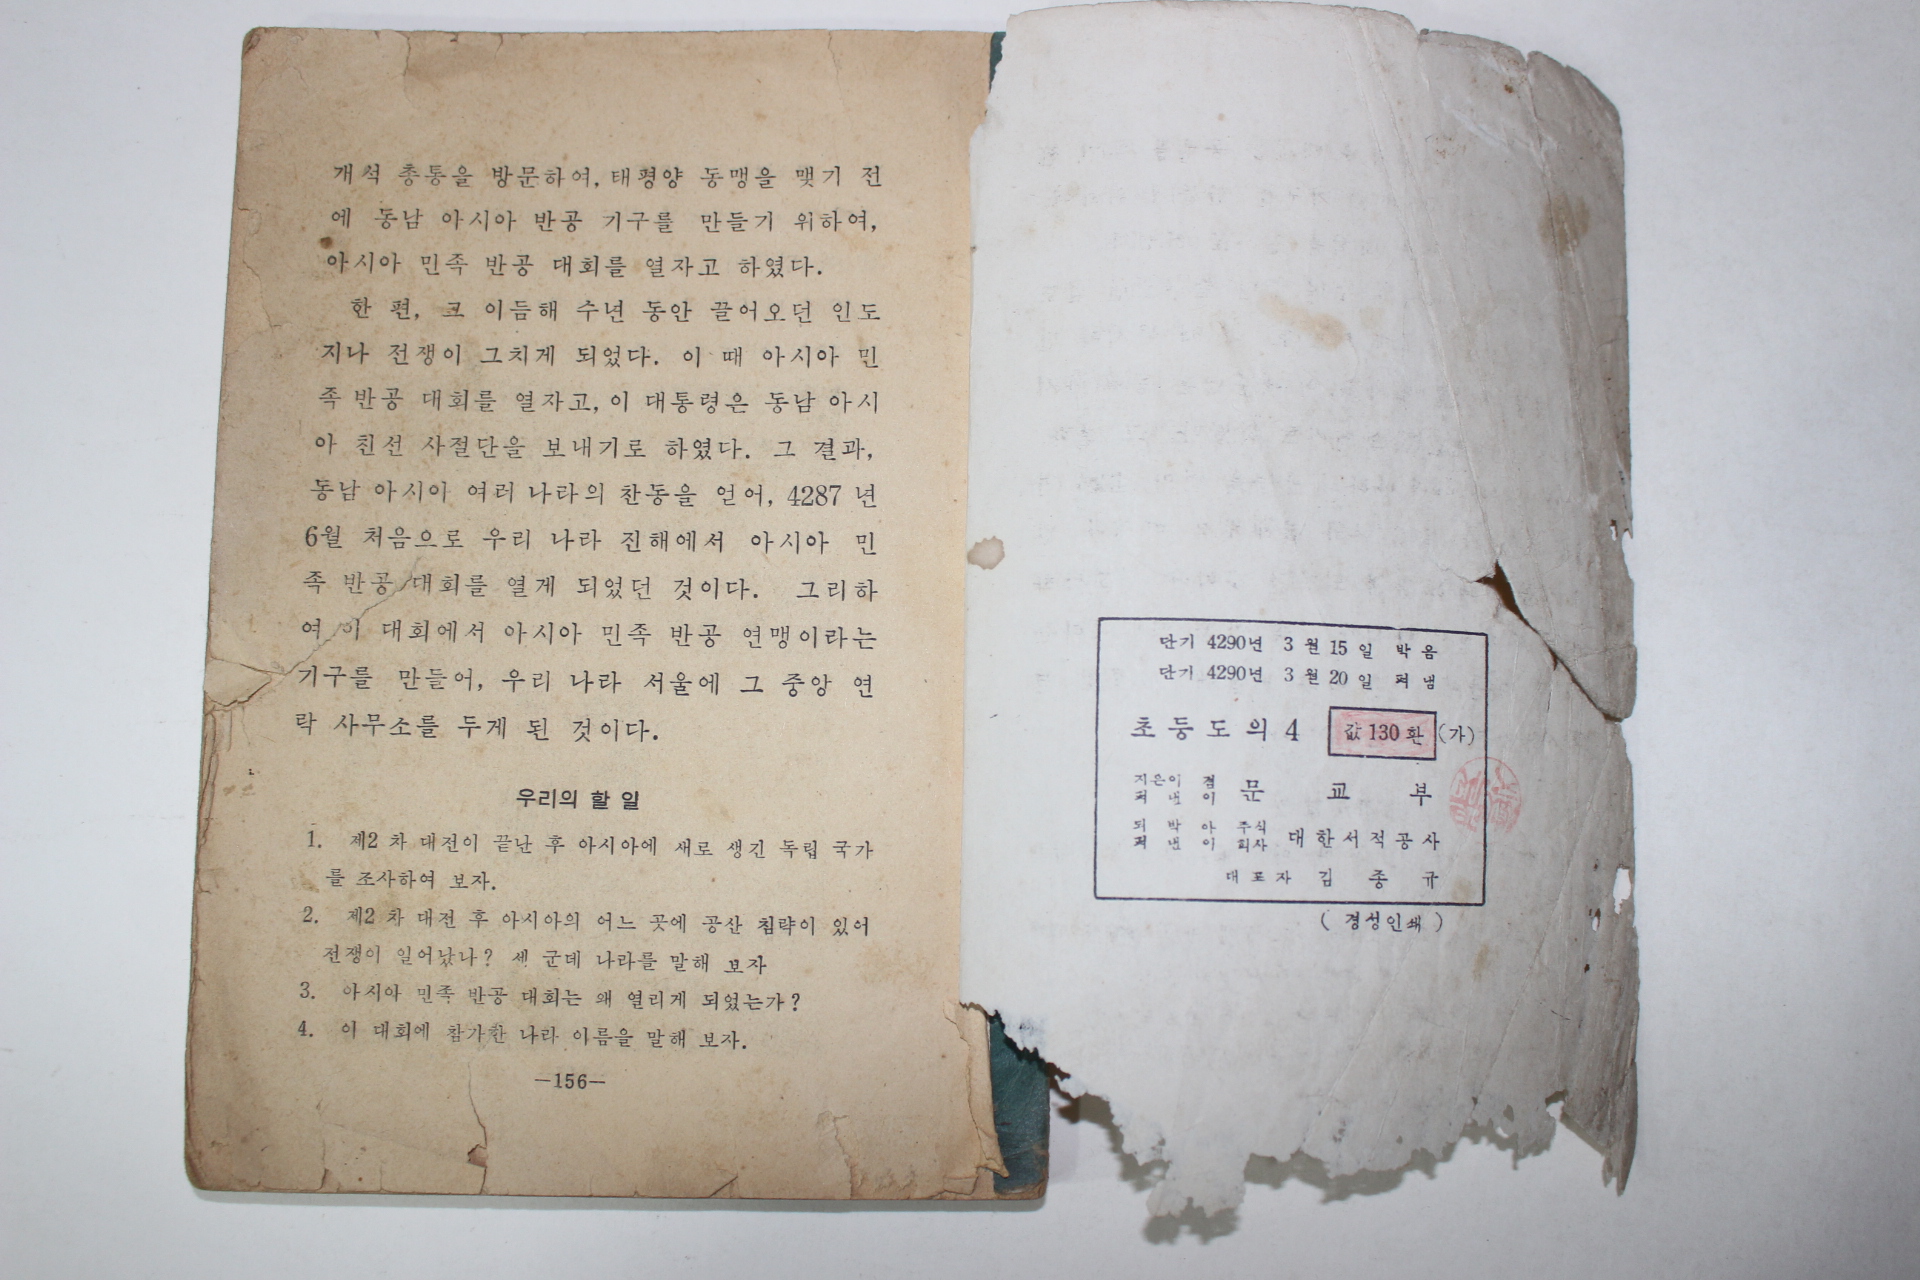 개석 총통을 방문하여, 태평양 동맹을 맺기 전
에 동남 아시아 반공 기구를 만들기 위하여,
아시아 민족 반공 대회를 열자고 하였다.
한 편, 그 이듬해 수년 동안 끌어오던 인도
지나 전쟁이 그치게 되었다. 이 때 아시아 민
족 반공 대회를 열자고, 이 대통령은 동남 아시
아 친선 사절단을 보내기로 하였다. 그 결과,
동남 아시아 여러 나라의 찬동을 얻어, 4287 년
6월 처음으로 우리 나라 진해에서 아시아 민
족 반공 대회를 열게 되었던 것이다. 그리하
여 이 대회에서 아시아 민족 반공 연맹이라는
기구를 만들어, 우리 나라 서울에 그 중앙 연
락 사무소를 두게 된 것이다.
우리의 할 일
1. 제2 차 대전이 끝난 후 아시아에 새로 생긴 독립 국가
를 조사하여 보자.
2. 제2 차 대전 후 아시아의 어느 곳에 공산 침략이 있어
전쟁이 일어났나? 세 군데 나라를 말해 보자
3. 아시아 민족 반공 대회는 왜 열리게 되었는가?
4. 이 대회에 참가한 나라 이름을 말해 보자.
—156—
단기 4290년 3 월 15 일 박음
단기 4290년 3 월 20 일 펴냄
초등도의 4 값 130 환 (가)
지은이 겸
펴낸이 문교부
되박아 주식
펴낸이 회사 대한서적공사
대표자 김종규
( 경성인쇄 )